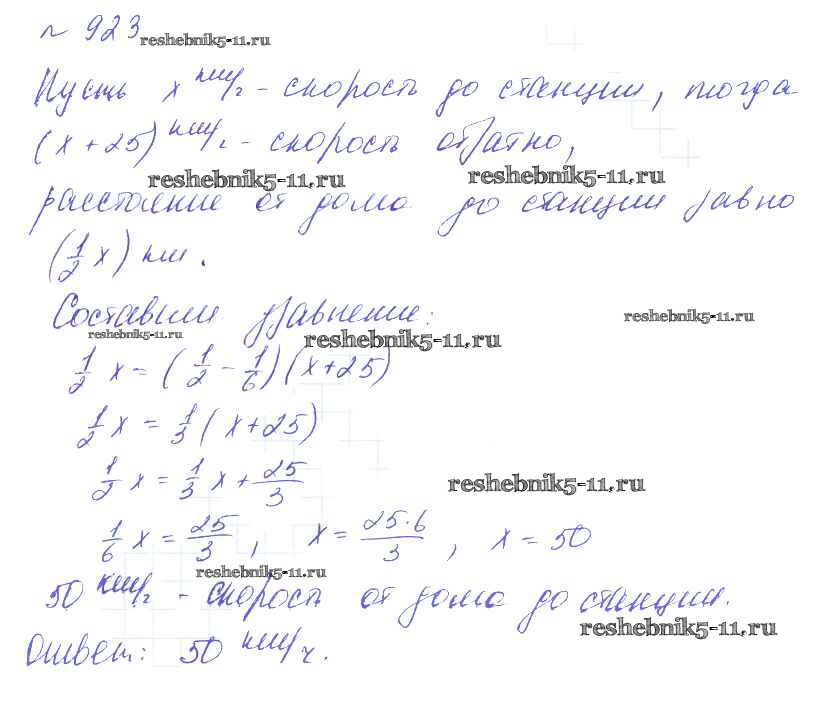 № 923
reshebnik5-11.ru
Пусть x км/ч - скорость до станции, тогда
(x + 25) км/ч - скорость обратно,
reshebnik5-11.ru reshebnik5-11.ru
расстояние от дома до станции равно
(1/2 x) км.
Составим уравнение:
reshebnik5-11.ru reshebnik5-11.ru reshebnik5-11.ru
1/2 x = (1/2 - 1/6)(x + 25)
1/2 x = 1/3 (x + 25)
1/2 x = 1/3 x + 25/3
reshebnik5-11.ru
1/6 x = 25/3, x = 25·6/3, x = 50
reshebnik5-11.ru
50 км/ч - скорость от дома до станции.
reshebnik5-11.ru
Ответ: 50 км/ч.